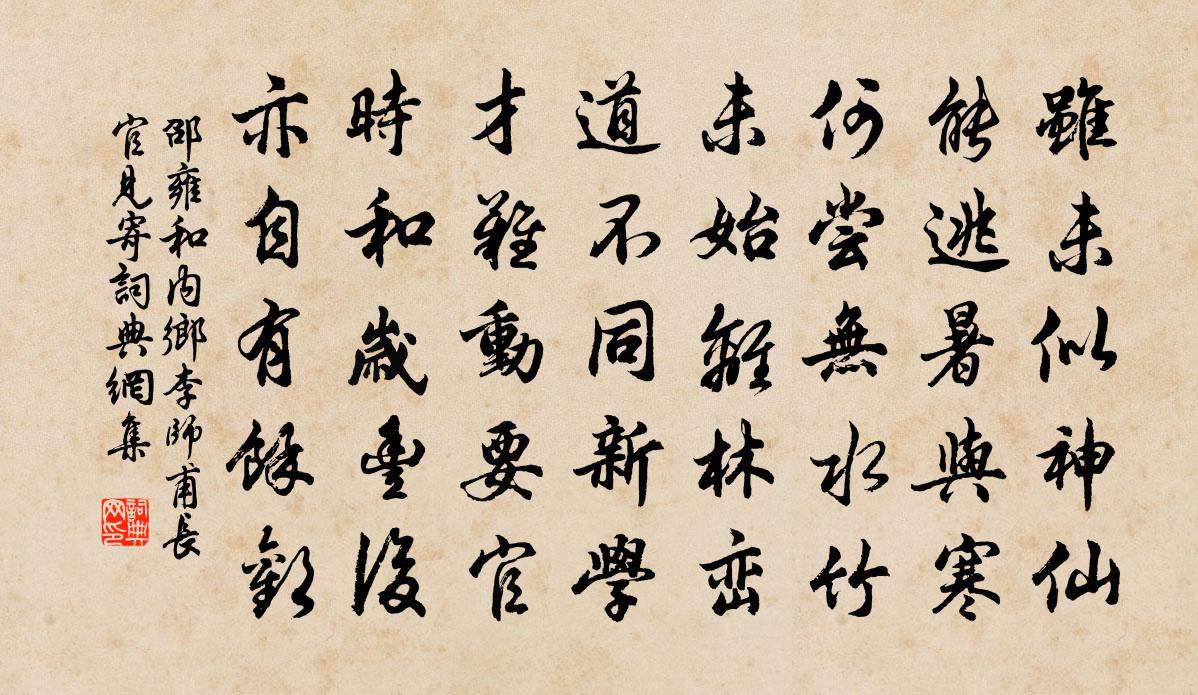 雖未似神仙
能逃暑與寒
何嘗無水竹
未始離林巒
道不同新學
才難動要官
時和歲豐後
亦自有餘歡
邵雍和内鄉李師甫長
官見寄詞典網集
詞典
网印